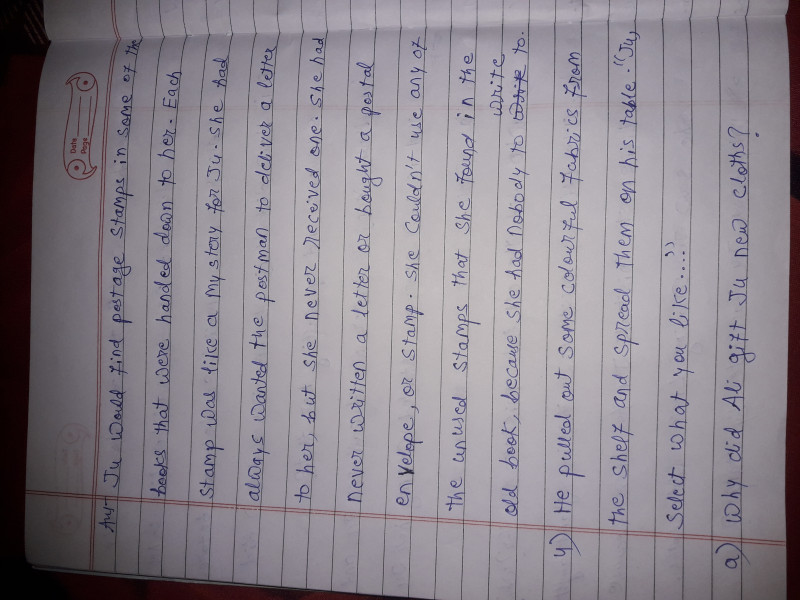 Date
Page
Ans- Ju would find postage stamps in some of the
books that were handed down to her. Each
stamp was like a mystory for Ju. She had
always wanted the postman to deliver a letter
to her, but she never received one. She had
never written a letter or bought a postal
envelope, or stamp. She couldn't use any of
the unused stamps that she found in the
old book, because she had nobody to write to.
4) He pulled out some colourful fabrics from
the shelf and spread them on his table. "Ju,
Select what you like...."
a) Why did Ali gift Ju new cloths?